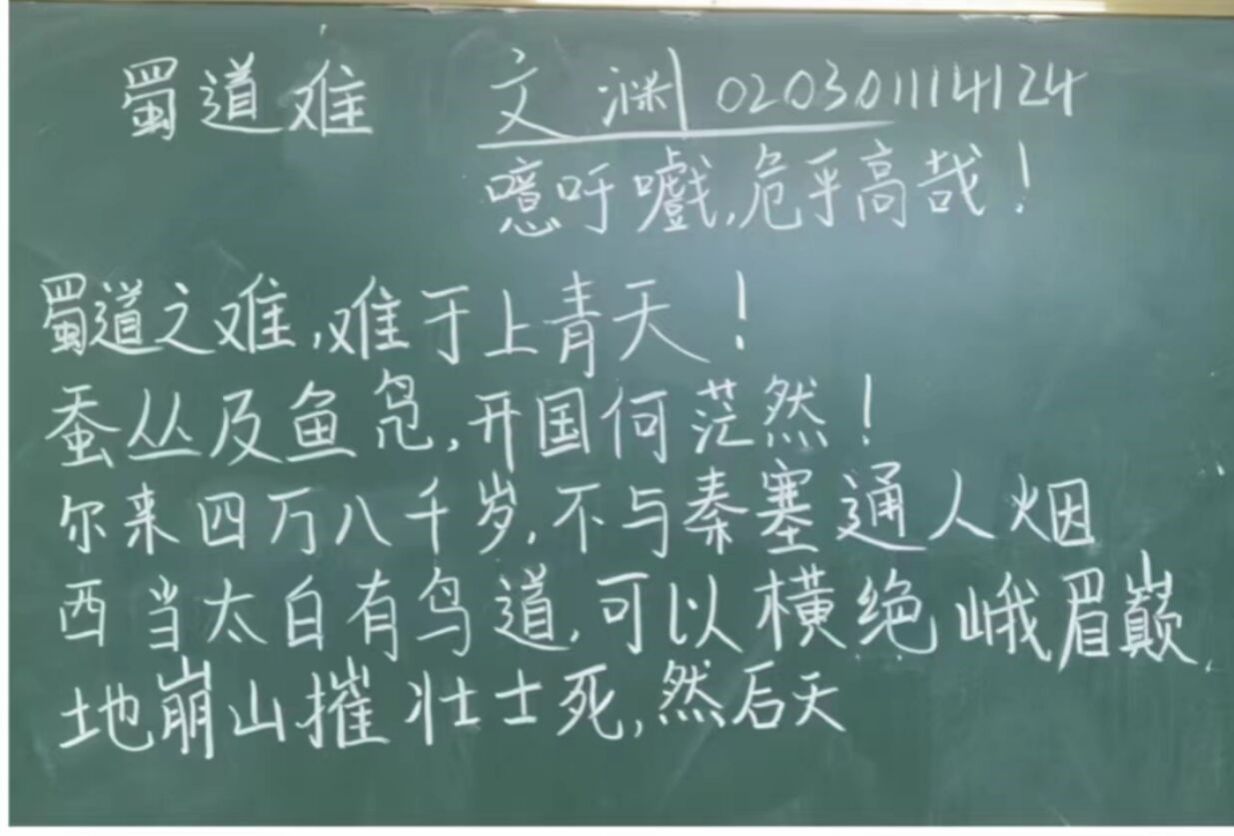 蜀道难 文渊 020301114124
噫吁嚱,危乎高哉!
蜀道之难,难于上青天!
蚕丛及鱼凫,开国何茫然!
尔来四万八千岁,不与秦塞通人烟
西当太白有鸟道,可以横绝峨眉巅.
地崩山摧壮士死,然后天